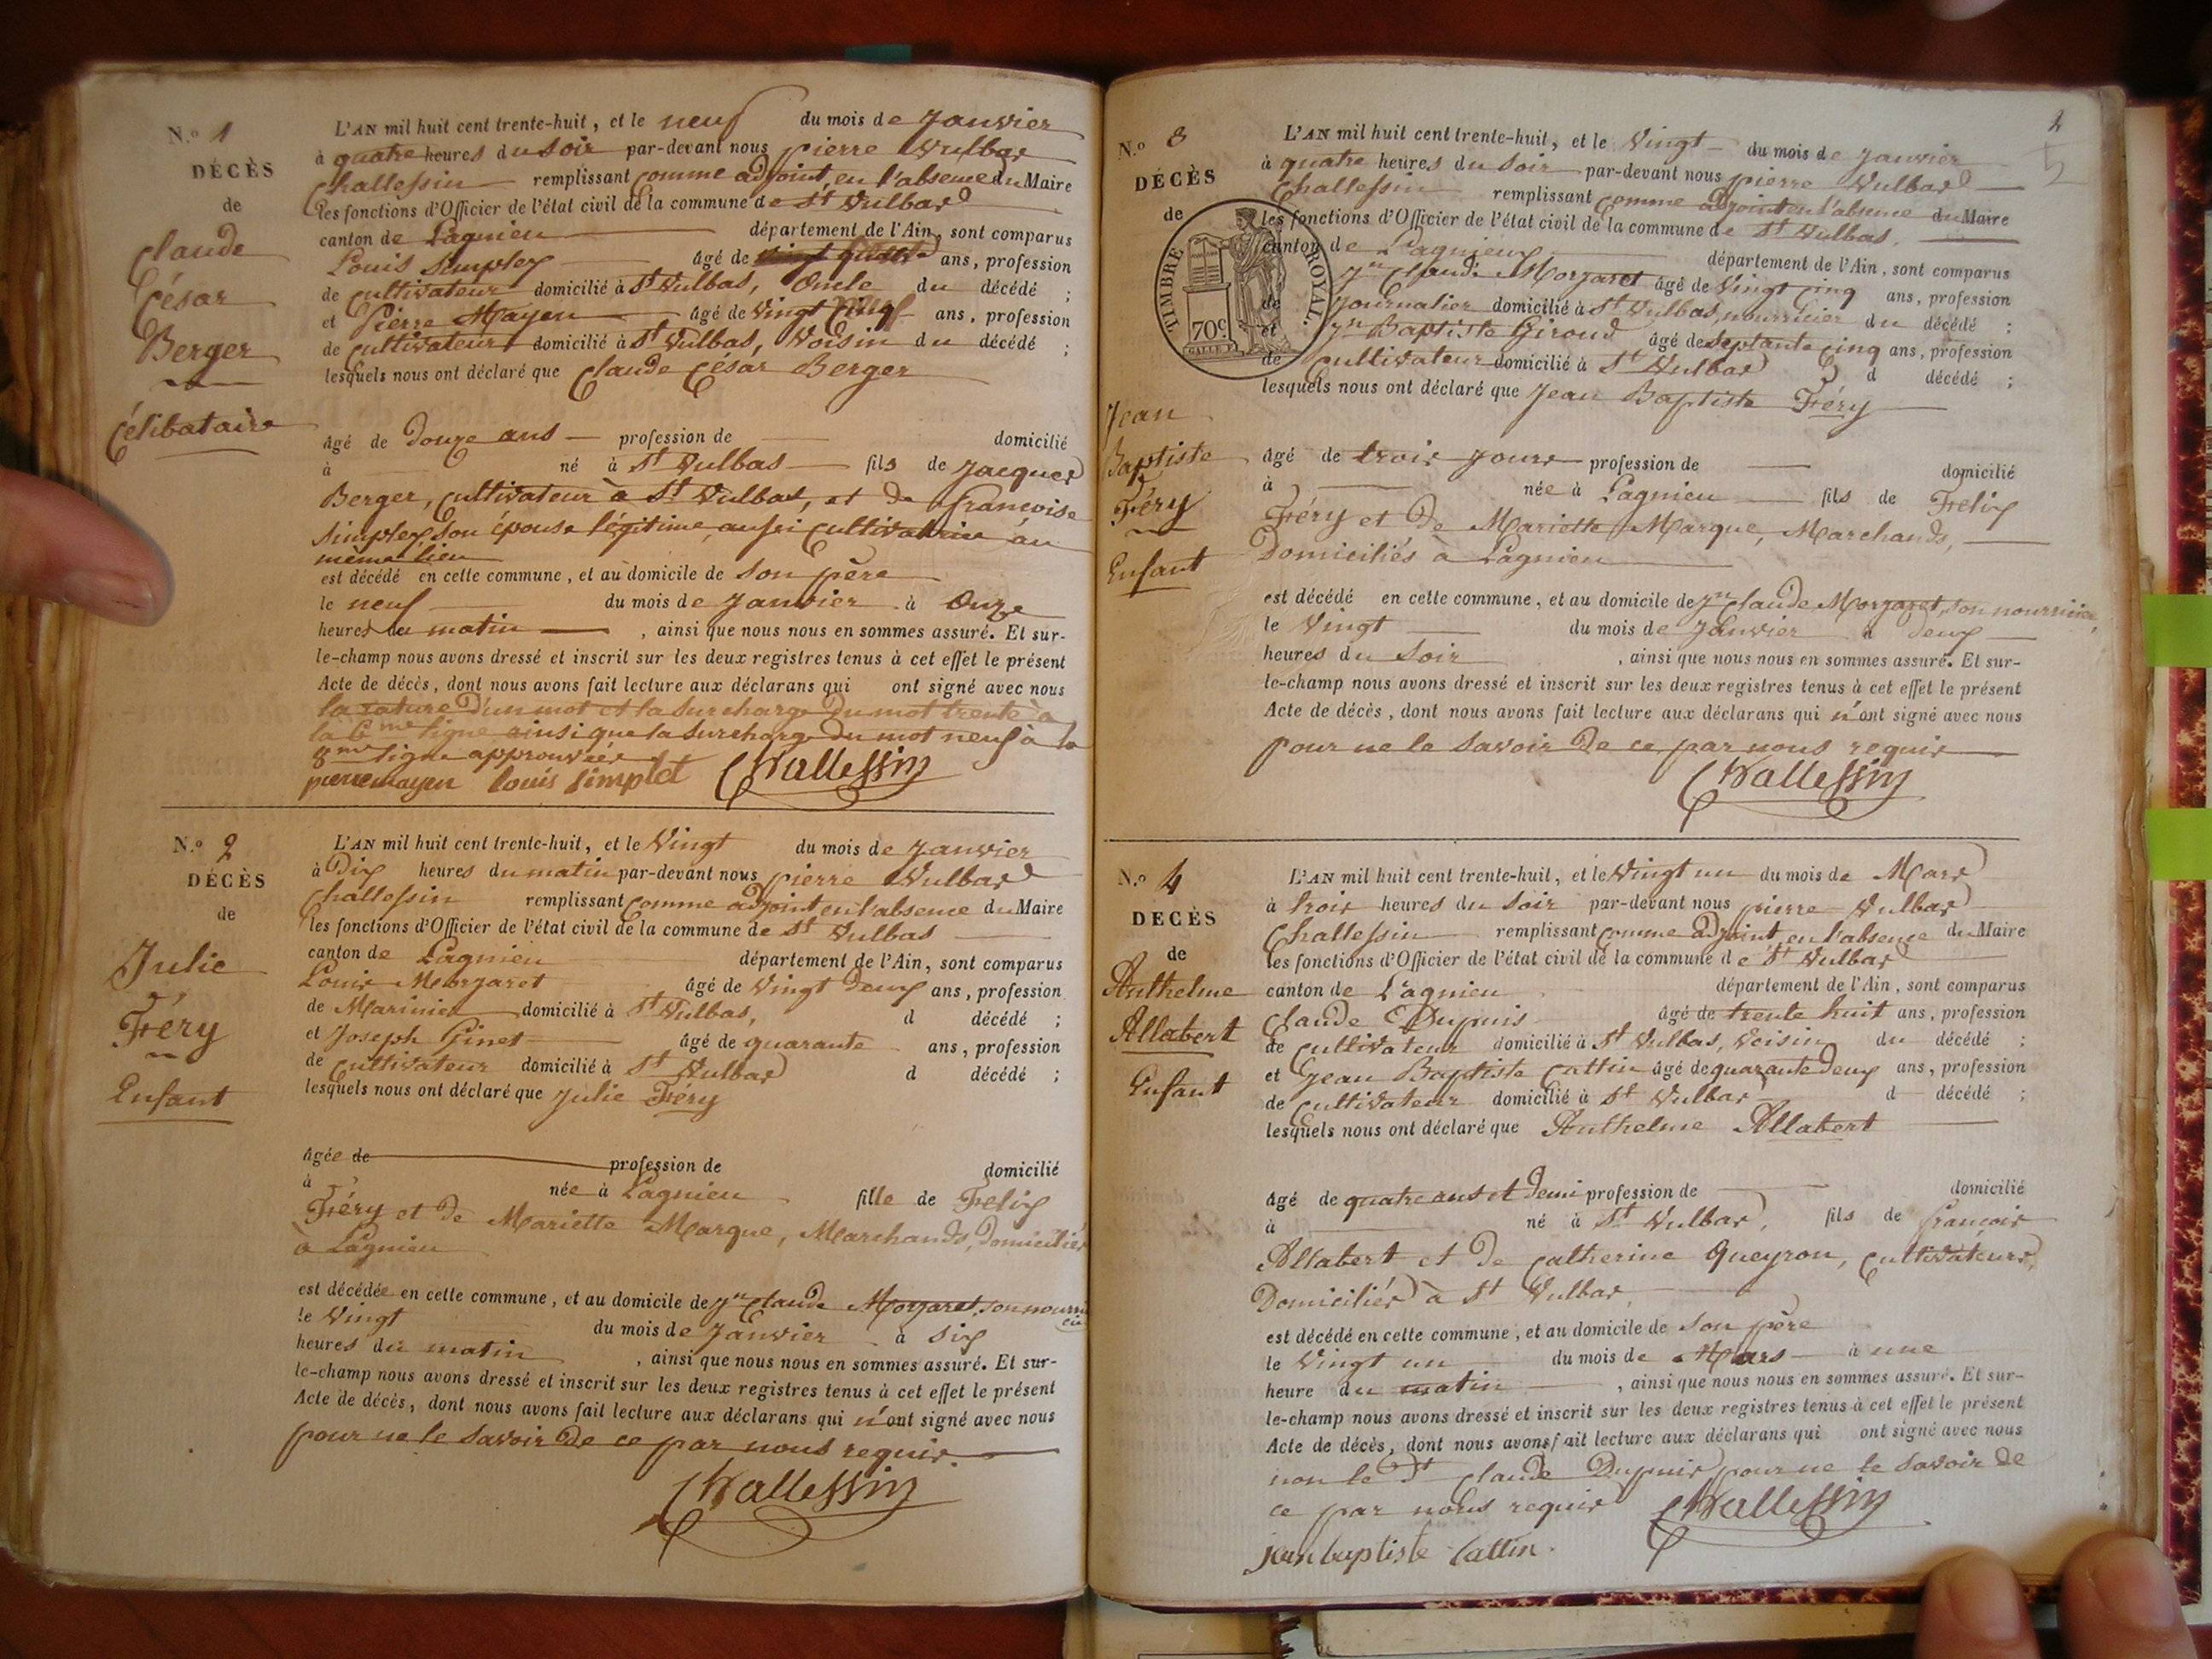 N.º 1
DÉCÈS
de
Claude
César
Berger
Célibataire
L'AN mil huit cent trente-huit, et le neuf du mois de Janvier
à quatre heures du soir par-devant nous pierre Vulbas
Challessin remplissant comme adjoint en l'absence du Maire
les fonctions d'Officier de l'état civil de la commune de St Vulbas
canton de Lagnieu département de l'Ain, sont comparus
Louis Simplex âgé de ans, profession
de cultivateur domicilié à St Vulbas, Oncle du décédé ;
et Pierre Mayen âgé de Vingt neuf ans, profession
de cultivateur domicilié à St Vulbas, Voisin du décédé ;
lesquels nous ont déclaré que Claude César Berger
âgé de douze ans profession de domicilié
à né à St Vulbas fils de Jacques
Berger, cultivateur à St Vulbas, et de francoise
Simplex son épouse légitime, aussi cultivatrice au
même lieu
est décédé en cette commune, et au domicile de son père
le neuf du mois de Janvier à Onze
heures du matin , ainsi que nous nous en sommes assuré. Et sur-
le-champ nous avons dressé et inscrit sur les deux registres tenus à cet effet le présent
Acte de décès, dont nous avons fait lecture aux déclarans qui ont signé avec nous
la rature d'un mot et la surcharge du mot trente à
la 6me ligne ainsi que la surcharge du mot neuf à la
8me ligne approuvées
pierre mayen louis simplet Challessin
N.º 2
DÉCÈS
de
Julie
Féry
Enfant
L'AN mil huit cent trente-huit, et le Vingt du mois de Janvier
à Dix heures du matin par-devant nous pierre Vulbas
Challessin remplissant comme adjoint en l'absence du Maire
les fonctions d'Officier de l'état civil de la commune de St Vulbas
canton de Lagnieu département de l'Ain, sont comparus
Louis Morgaret âgé de Vingt deux ans, profession
de Marinier domicilié à St Vulbas, d décédé ;
et Joseph Ginet âgé de quarante ans, profession
de cultivateur domicilié à St Vulbas d décédé ;
lesquels nous ont déclaré que Julie Féry
âgée de profession de domicilié
à née à Lagnieu fille de Felix
Féry et de Mariette Marque, Marchands, domiciliés
à Lagnieu
est décédée en cette commune, et au domicile de Jn Claude Morgaret, son nourri
cier
le Vingt du mois de Janvier à six
heures du matin , ainsi que nous nous en sommes assuré. Et sur-
le-champ nous avons dressé et inscrit sur les deux registres tenus à cet effet le présent
Acte de décès, dont nous avons fait lecture aux déclarans qui n'ont signé avec nous
pour ne le savoir de ce par nous requis.
Challessin
2
N.º 3
DÉCÈS
de
TIMBRE ROYAL.
70c.
Jean
Baptiste
Féry
Enfant
L'AN mil huit cent trente-huit, et le Vingt du mois de Janvier
à quatre heures du soir par-devant nous pierre Vulbas
Challessin remplissant comme adjoint en l'absence du Maire
les fonctions d'Officier de l'état civil de la commune de St Vulbas.
canton de Lagnieu département de l'Ain, sont comparus
Jn Claude Morgaret âgé de Vingt Cinq ans, profession
de Journalier domicilié à St Vulbas, nourricier du décédé ;
et Jn Baptiste Giroud âgé de septante cinq ans, profession
de Cultivateur domicilié à St Vulbas d décédé ;
lesquels nous ont déclaré que Jean Baptiste Féry
âgé de trois jours profession de domicilié
à née à Lagnieu fils de Felix
Féry et de Mariette Marque, Marchands,
Domiciliés à Lagnieu
est décédé en cette commune, et au domicile de Jn Claude Morgaret, son nourricier,
le Vingt du mois de Janvier à deux
heures du soir , ainsi que nous nous en sommes assuré. Et sur-
le-champ nous avons dressé et inscrit sur les deux registres tenus à cet effet le présent
Acte de décès, dont nous avons fait lecture aux déclarans qui n'ont signé avec nous
pour ne le savoir de ce par nous requis
Challessin
N.º 4
DÉCÈS
de
Anthelme
Allabert
Enfant
L'AN mil huit cent trente-huit, et le Vingt un du mois de Mars
à trois heures du soir par-devant nous pierre Vulbas
Challessin remplissant comme adjoint en l'absence du Maire
les fonctions d'Officier de l'état civil de la commune de St Vulbas
canton de Lagnieu département de l'Ain, sont comparus
Claude Dupuis âgé de trente huit ans, profession
de cultivateur domicilié à St Vulbas, Voisin du décédé ;
et Jean Baptiste Cattin âgé de quarante deux ans, profession
de cultivateur domicilié à St Vulbas d décédé ;
lesquels nous ont déclaré que Anthelme Allabert
âgé de quatre ans et demi profession de domicilié
à né à St Vulbas, fils de francois
Allabert et de Catherine Queyron, cultivateurs,
Domiciliés à St Vulbas,
est décédé en cette commune, et au domicile de son père
le Vingt un du mois de Mars à une
heure du matin , ainsi que nous nous en sommes assuré. Et sur-
le-champ nous avons dressé et inscrit sur les deux registres tenus à cet effet le présent
Acte de décès, dont nous avons fait lecture aux déclarans qui ont signé avec nous
non le dt Claude Dupuis pour ne le savoir de
ce par nous requis Challessin
jean baptiste Cattin.